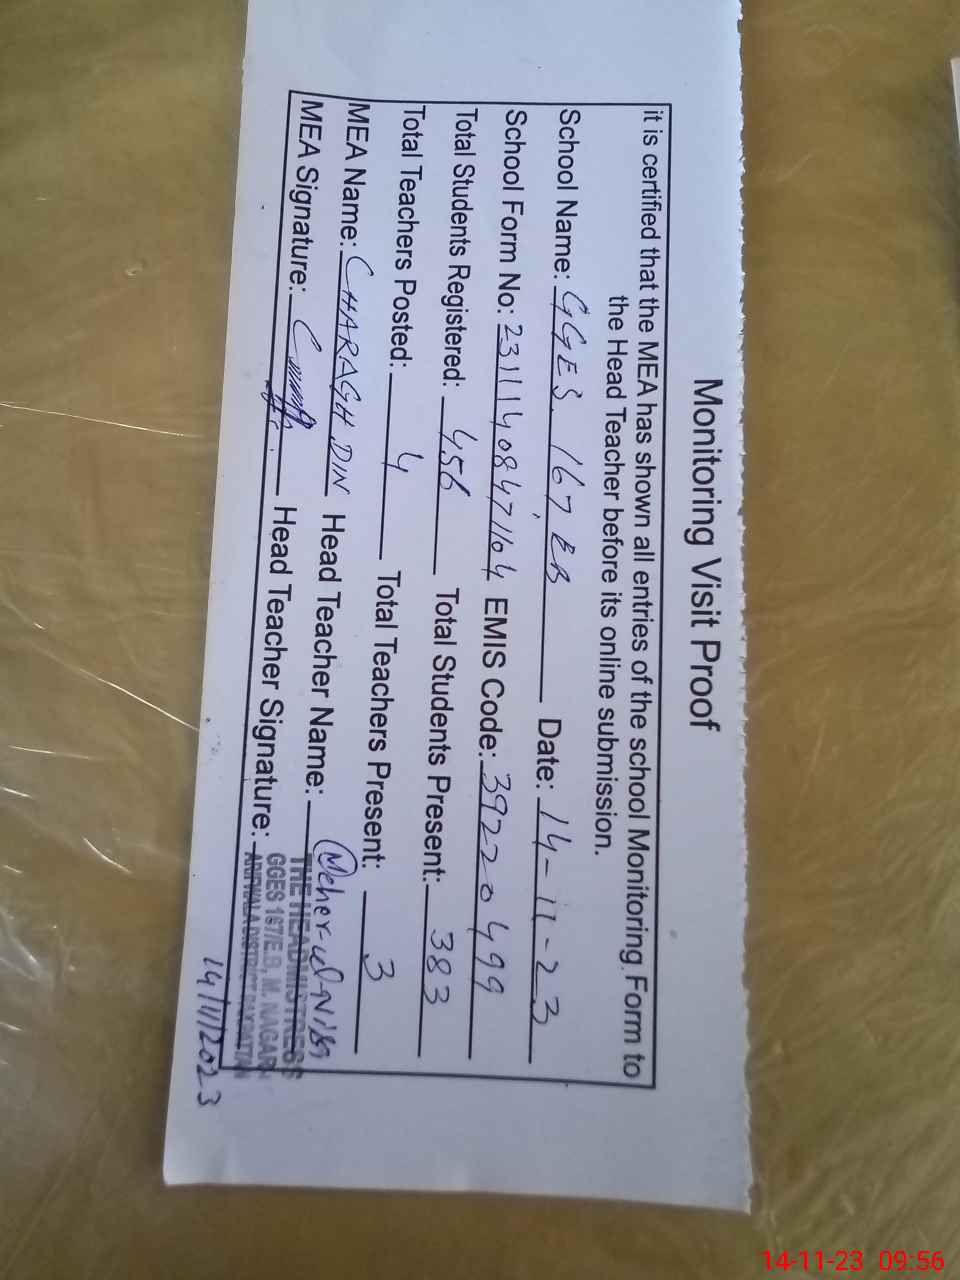 Monitoring Visit Proof
it is certified that the MEA has shown all entries of the school Monitoring Form to
the Head Teacher before its online submission.
School Name: GGES 167 EB Date: 14-11-23
School Form No: 23111408471104 EMIS Code: 39220499
Total Students Registered: 456 Total Students Present: 383
Total Teachers Posted: 4 Total Teachers Present: 3
MEA Name: CHARAGH DIN Head Teacher Name: Meher-ul-Nisa
MEA Signature: Head Teacher Signature:
THE HEADMISTRESS
GGES 167/E.B, M. NAGAR
ARIFWALA DISTRICT PAKPATTAN
14/11/2023
14-11-23 09:56